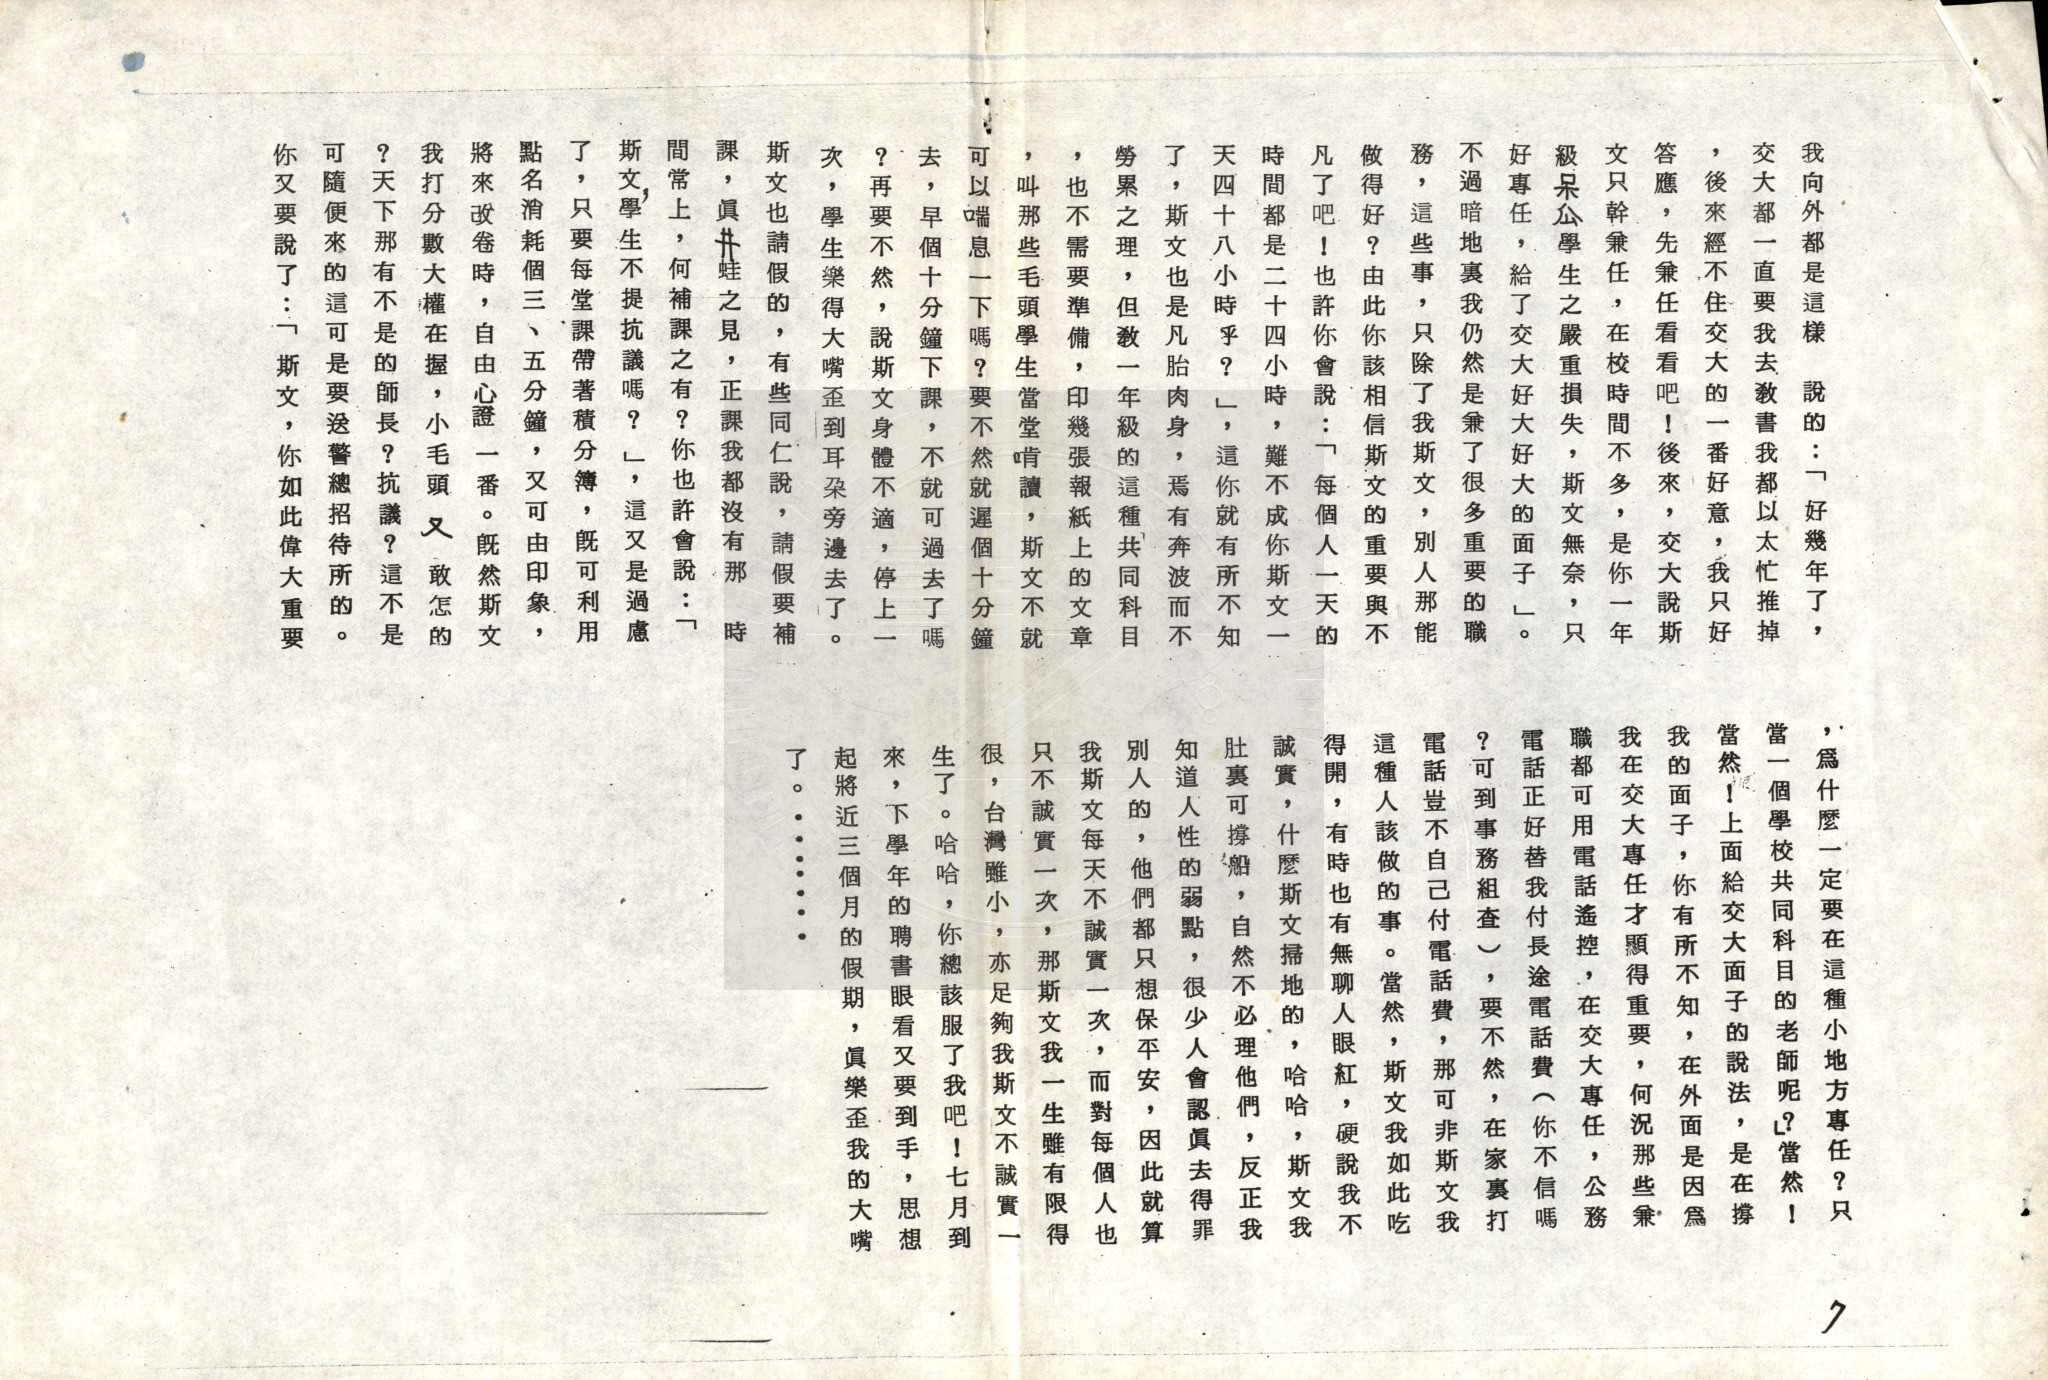 我向外都是這樣　說的：「好幾年了，
交大都一直要我去敎書我都以太忙推掉
，後來經不住交大的一番好意，我只好
答應，先兼任看看吧！後來，交大說斯
文只幹兼任，在校時間不多，是你一年
級呆公學生之嚴重損失，斯文無奈，只
好專任，給了交大好大好大的面子」。
不過暗地裏我仍然是兼了很多重要的職
務，這些事，只除了我斯文，別人那能
做得好？由此你該相信斯文的重要與不
凡了吧！也許你會說：「每個人一天的
時間都是二十四小時，難不成你斯文一
天四十八小時乎？」，這你就有所不知
了，斯文也是凡胎肉身，焉有奔波而不
勞累之理，但敎一年級的這種共同科目
，也不需要準備，印幾張報紙上的文章
，叫那些毛頭學生當堂啃讀，斯文不就
可以喘息一下嗎？要不然就遲個十分鐘
去，早個十分鐘下課，不就可過去了嗎
？再要不然，說斯文身體不適，停上一
次，學生樂得大嘴歪到耳朶旁邊去了。
斯文也請假的，有些同仁說，請假要補
課，眞井蛙之見，正課我都沒有那　時
間常上，何補課之有？你也許會說：「
斯文，學生不提抗議嗎？」，這又是過慮
了，只要每堂課帶著積分簿，旣可利用
點名消耗個三、五分鐘，又可由印象，
將來改卷時，自由心證一番。旣然斯文
我打分數大權在握，小毛頭又敢怎的
？天下那有不是的師長？抗議？這不是
可隨便來的這可是要送警總招待所的。
你又要說了：「斯文，你如此偉大重要
，爲什麼一定要在這種小地方專任？只
當一個學校共同科目的老師呢？」當然！
當然！上面給交大面子的說法，是在撐
我的面子，你有所不知，在外面是因爲
我在交大專任才顯得重要，何況那些兼
職都可用電話遙控，在交大專任，公務
電話正好替我付長途電話費（你不信嗎
？可到事務組查），要不然，在家裏打
電話豈不自己付電話費，那可非斯文我
這種人該做的事。當然，斯文我如此吃
得開，有時也有無聊人眼紅，硬說我不
誠實，什麼斯文掃地的，哈哈，斯文我
肚裏可撐船，自然不必理他們，反正我
知道人性的弱點，很少人會認眞去得罪
別人的，他們都只想保平安，因此就算
我斯文每天不誠實一次，而對每個人也
只不誠實一次，那斯文我一生雖有限得
很，台灣雖小，亦足夠我斯文不誠實一
生了。哈哈，你總該服了我吧！七月到
來，下學年的聘書眼看又要到手，思想
起將近三個月的假期，眞樂歪我的大嘴
了。·······
7